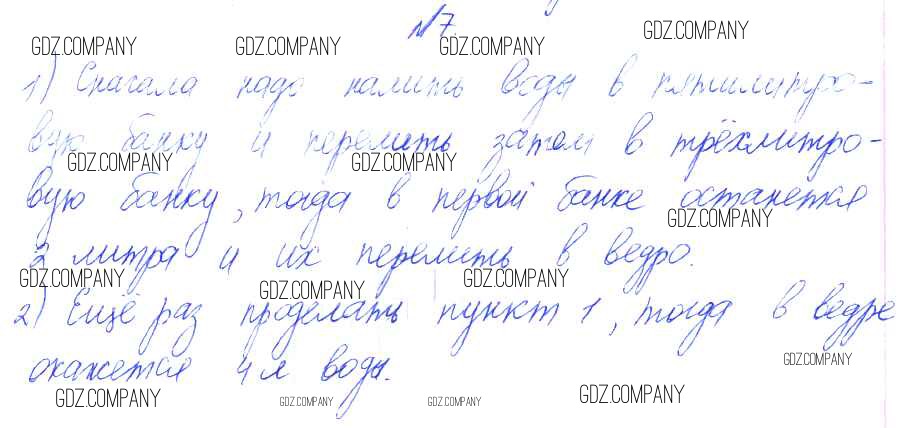 №7.
GDZ.COMPANY GDZ.COMPANY GDZ.COMPANY GDZ.COMPANY
1) Сначала надо налить воды в пятилитро-
вую банку и перелить затем в трёхлитро-
GDZ.COMPANY GDZ.COMPANY
вую банку, тогда в первой банке останется
GDZ.COMPANY
2 литра и их перелить в ведро.
GDZ.COMPANY GDZ.COMPANY GDZ.COMPANY
2) Ещё раз проделать пункт 1, тогда в ведре
окажется 4 л воды.
GDZ.COMPANY
GDZ.COMPANY GDZ.COMPANY GDZ.COMPANY GDZ.COMPANY